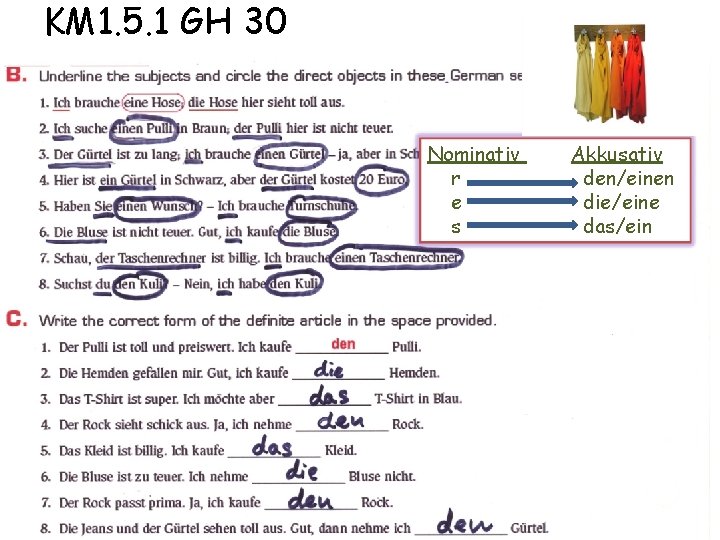 KM1.5.1 GH 30
B. Underline the subjects and circle the direct objects in these German se
1. Ich brauche eine Hose, die Hose hier sieht toll aus.
2. Ich suche einen Pulli in Braun; der Pulli hier ist nicht teuer.
3. Der Gürtel ist zu lang; ich brauche einen Gürtel – ja, aber in Sch
4. Hier ist ein Gürtel in Schwarz, aber der Gürtel kostet 20 Euro.
5. Haben Sie einen Wunsch? – Ich brauche Turnschuhe.
6. Die Bluse ist nicht teuer. Gut, ich kaufe die Bluse.
7. Schau, der Taschenrechner ist billig. Ich brauche einen Taschenrechner.
8. Suchst du den Kuli? – Nein, ich habe den Kuli.
Nominativ Akkusativ
r den/einen
e die/eine
s das/ein
C. Write the correct form of the definite article in the space provided.
1. Der Pulli ist toll und preiswert. Ich kaufe den Pulli.
2. Die Hemden gefallen mir. Gut, ich kaufe die Hemden.
3. Das T-Shirt ist super. Ich möchte aber das T-Shirt in Blau.
4. Der Rock sieht schick aus. Ja, ich nehme den Rock.
5. Das Kleid ist billig. Ich kaufe das Kleid.
6. Die Bluse ist zu teuer. Ich nehme die Bluse nicht.
7. Der Rock passt prima. Ja, ich kaufe den Rock.
8. Die Jeans und der Gürtel sehen toll aus. Gut, dann nehme ich den Gürtel.